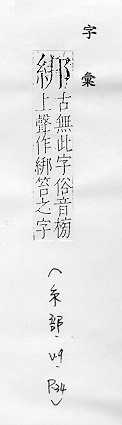 字彙
綁
古無此字俗音榜
上聲作綁笞之字
(糸部·U9·P34)